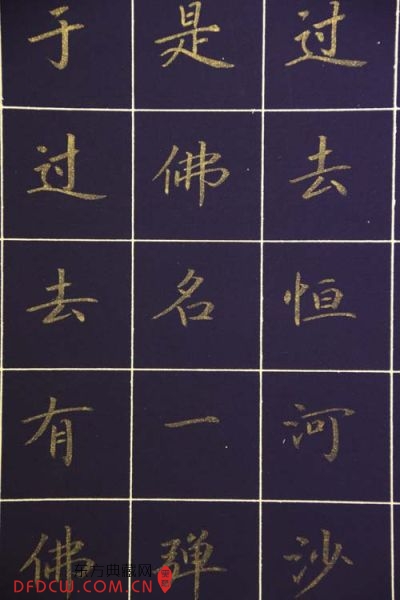 过去恒河沙
是佛名一弹
于过去有佛
东方典藏网
DFDCW.COM.CN